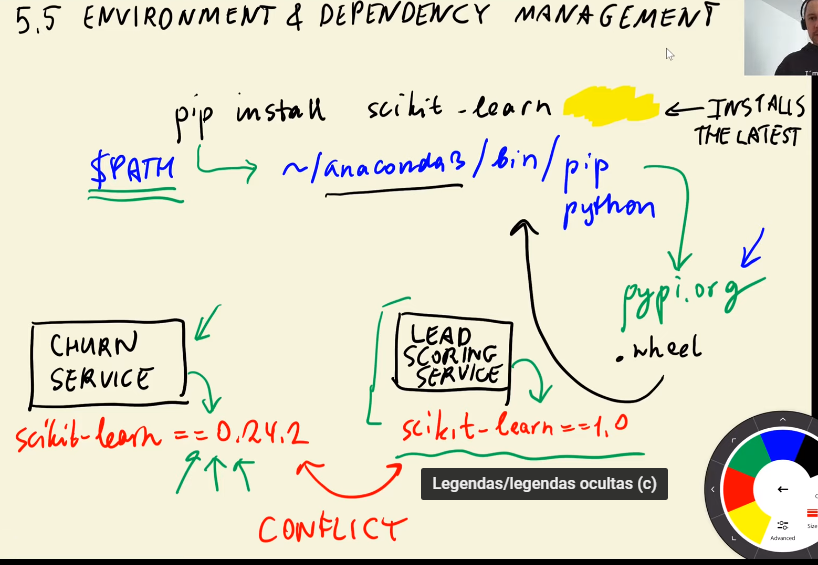 5.5 ENVIRONMENT & DEPENDENCY MANAGEMENT
pip install scikit-learn ← INSTALLS
THE LATEST
$PATH ~/anaconda3/bin/pip
python
pypi.org
.wheel
CHURN
SERVICE
LEAD
SCORING
SERVICE
scikit-learn == 0.24.2
scikit-learn==1.0
Legendas/legendas ocultas (c)
CONFLICT
Advanced
Size